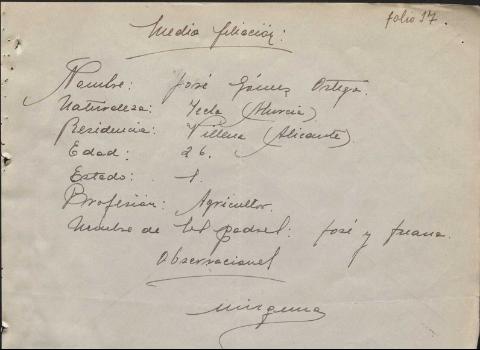 folio 17.
Media filiación:
Nombre: José Gómez Ortega.
Naturaleza: Yecla (Murcia)
Residencia: Villena (Alicante)
Edad: 26.
Estado: 
Profesión: Agricultor.
Nombre de los padres: José y Juana.
Observaciones
Ninguna